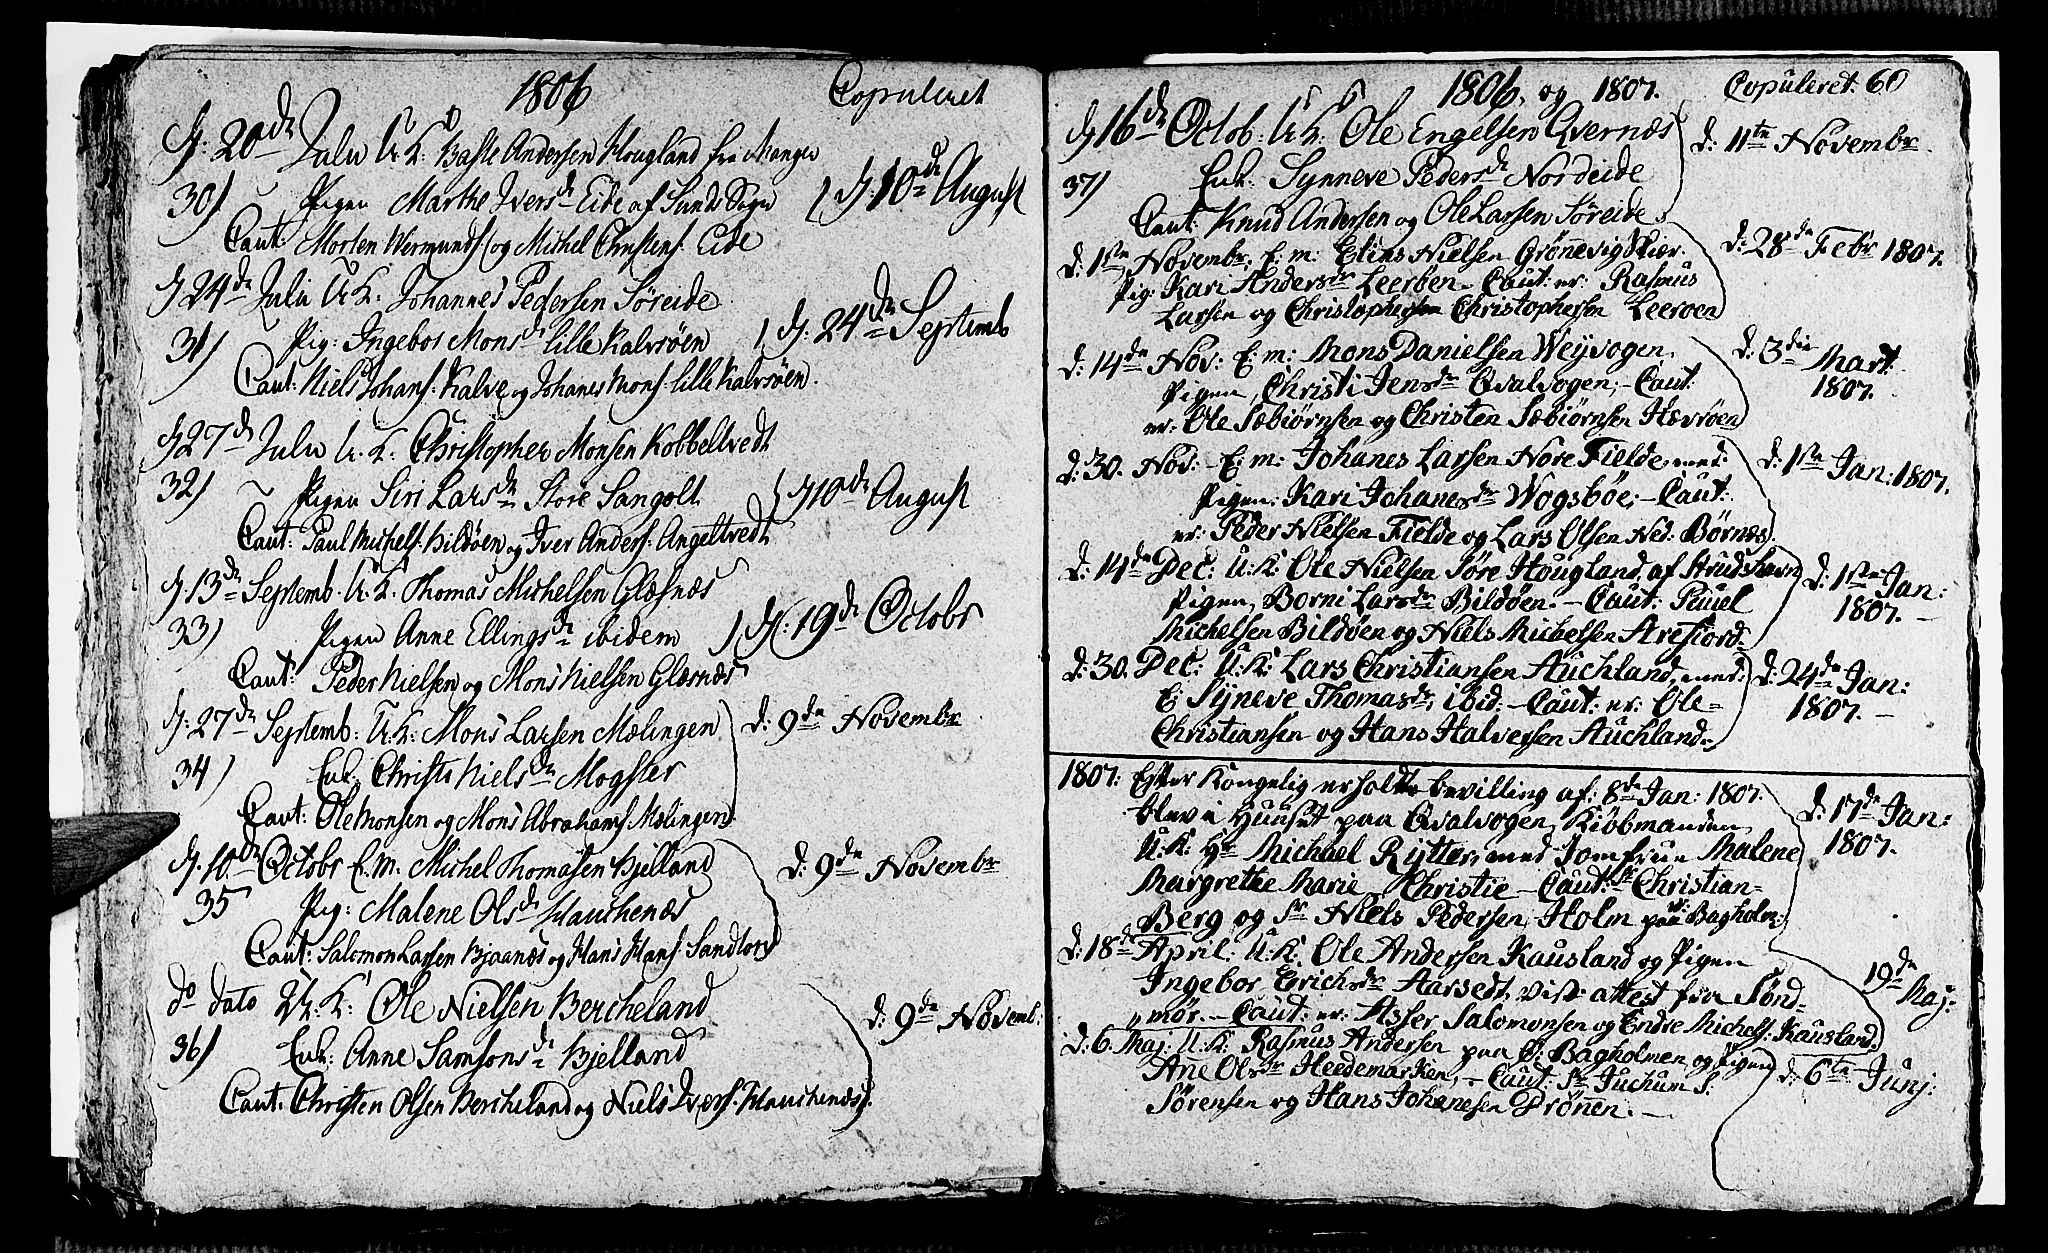 1806 Copuleret
D: 20de Julii U: K: Basse Andersen Hougland fra Manger
30) Pigen Marthe Ivers dr Eide af Sunds Sogn D. 10de August
Caut: Morten Wermunds: og Michel Christens: Eide
D 24de Julii U: K. Johannes Pedersen Søreide
31) Pig: Ingebor Mons dr lille Kalvsöen D. 24de Septemb
Caut: Niels Johans: Kalve og Johanes Mons: lille Kalvsöen.
D 27de Julii U. K. Christopher Monsen Kobbeltvedt
32) Pigen Siri Lars dr Store Sangolt D 10de August
Caut: Paul Michels: Bildöen og Iver Anders: Angeltvedt
D 13de Septemb. U. K. Thomas Michelsen Glæsnæs
33) Pigen Anne Ellings dr ibidem D: 19de Octobr
Caut: Peder Nielsen og Mons Nielsen Glæsnæs
D: 27de Septemb: U: K: Mons Larsen Mælingen D: 9de Novembr
34) Enk: Christi Niels dr Mogster
Caut: Ole Monsen og Mons Abrahams: Mælingen
D. 10de Octobr E. M. Michel Thomasen Bjelland D: 9de Novembr
35 Pig: Malene Ols dr Hauchenæs
Caut: Salomon Larsen Bjaanæs og Hans Hans: Sandtorv
do dato U: K: Ole Nielsen Bercheland D: 9de Novemb:
36) Enk: Anne Samsons dr Bjelland
Caut: Christen Olsen Bercheland og Niels Ivers: Hauchenæs.
1806, og 1807. Copuleret: 60
D 16de Octob: U: K: Ole Engelsen Qvernæs D: 11te Novembr
37) Enk: Synneve Peders dr Nordeide
Caut: Knud Andersen og Ole Larsen Søreide
D: 1ste Novembr, E: m: Elias Nielsen Grönnevig Skier. D: 28de Febr 1807.
Pig: Kari Anders dr Leeröen - Caut: er: Rasmus
Larsen og Christophersen Christophersen Leeroen
D: 14de Nov: E: m: Mons Danielsen Weyvogen D: 3die Mart
Pigen, Christi Jens dr Qvalvogen; - Caut: 1807.
er: Ole Sæbiörnsen og Christen Sæbiörnsen Hævröen
D: 30. Nov: - E: m: Johanes Larsen Nore Fielde, med: D: 1ste Jan: 1807.
Pigen: Kari Johanes dr Wogsböe; - Caut:
er: Peder Nielsen Fielde og Lars Olsen Ned: Börnæs
D: 14de Dec: U: K: Ole Nielsen Söre Hougland, af Strudshavn D: 1ste Jan:
Pigen, Borni Lars dr Bildöen. - Caut: Pouel 1807. -
Michelsen Bildöen og Niels Michelsen Arefiord
D: 30. Dec: U: K: Lars Christiansen Auchland, med: D: 24de Jan:
E: Syneve Thomas dr, ibid: - Caut: er: Ole 1807. -
Christiansen og Hans Halversen Auchland.
1807. Efter Kongelig erholdte bevilling af: 8de Jan: 1807. D: 17de Jan:
blev i Huuset paa Qvalvogen, Kiöbmanden 1807.
U: K: Hr Michael Rytter, med Jomfrue Malene
Margrethe Marie Christie - Caut: Sr Christian
Berg og Sr Niels Pedersen Holm paa Bagholm:
D: 18de April: U: K: Ole Andersen Kausland og Pigen 19de Maj:
Ingebor Erichs dr Aarsedt, vist attest fra Sönd-
mör. - Caut: er: Asser Salomonsen og Endre Michels: Kausland.
D: 6. Maj: U: K: Rasmus Andersen paa Ø: Bagholmen og Pigen D: 6te Junj:
Ane Ols dr Heedemarken, - Caut: Sr Juchum S.
Sörensen og Hans Johanesen Drönen. -